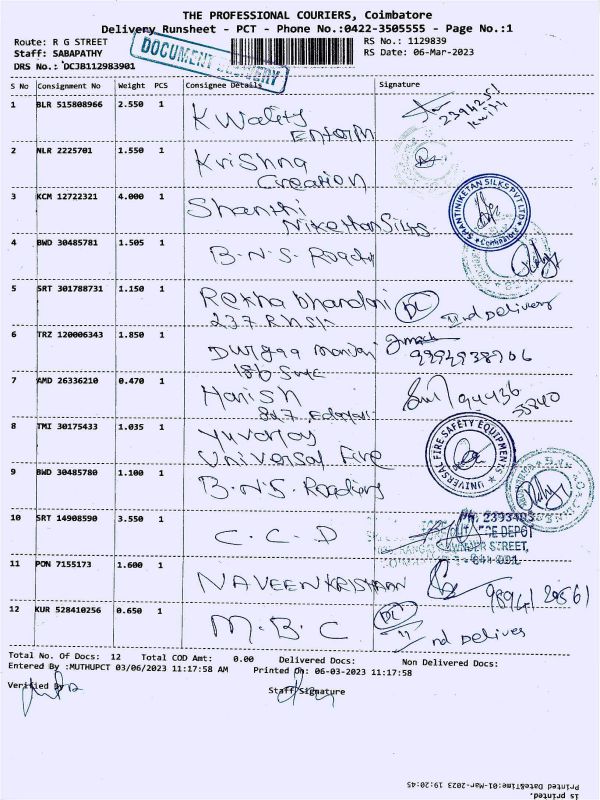 THE PROFESSIONAL COURIERS, Coimbatore
Delivery Runsheet - PCT - Phone No.:0422-3505555 - Page No.:1
Route: R G STREET
RS No.: 1129839
Staff: SABAPATHY
RS Date: 06-Mar-2023
DRS No.: DCJB112983901
DOCUMENT DELIVERY
S No Consignment No Weight PCS Consignee Details Signature
1 BLR 515808966 2.550 1 Kwality
2394251
2 NLR 2225701 1.550 1 Krishna
Creation
3 KCM 12722321 4.000 1 Shanthi
Nikethan Silks
SHANTINIKETAN SILKS PVT LTD
Coimbatore
4 BWD 30485781 1.505 1 B.N.S.
5 SRT 301788731 1.150 1 Rekha bhandari DL
237 IInd Delivery
6 TRZ 120006343 1.850 1
186
7 AMD 26336210 0.470 1 Harish 94436
827 55840
8 TMI 30175433 1.035 1
Universal Fire
UNIVERSAL FIRE SAFETY EQUIPMENTS
9 BWD 30485780 1.100 1 B.N.S.
10 SRT 14908590 3.550 1 C.C.D
STREET,
11 PON 7155173 1.600 1 NAVEENKRISHNAN
12 KUR 528410256 0.650 1 M.B.C DL
IInd Delivery
Total No. Of Docs: 12 Total COD Amt: 0.00 Delivered Docs: Non Delivered Docs:
Entered By :MUTHUPCT 03/06/2023 11:17:58 AM Printed On: 06-03-2023 11:17:58
Verified By
Staff Signature
Printed Date&Time:01-Mar-2023 19:20:45
is printed.